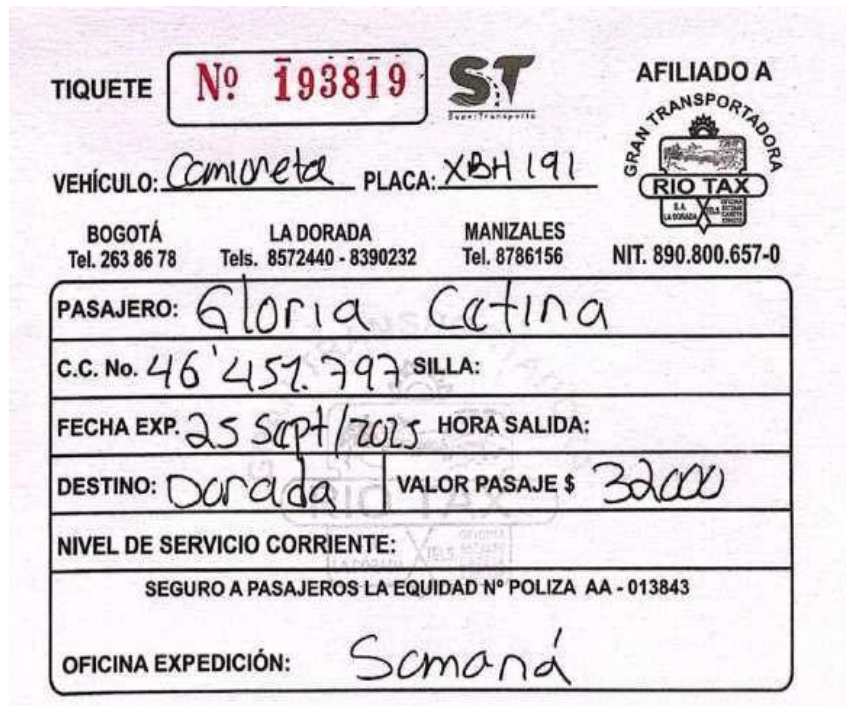 TIQUETE Nº 193819 ST AFILIADO A
SuperTransporte
GRAN TRANSPORTADORA
RIO TAX
S.A.
LA DORADA TELS.
VEHÍCULO: Camioneta PLACA: XBH 191
BOGOTÁ LA DORADA MANIZALES
Tel. 263 86 78 Tels. 8572440 - 8390232 Tel. 8786156 NIT. 890.800.657-0
PASAJERO: Gloria Catina
C.C. No. 46'451.797 SILLA:
FECHA EXP. 25 Sept/2025 HORA SALIDA:
DESTINO: Dorada VALOR PASAJE $ 32000
NIVEL DE SERVICIO CORRIENTE:
SEGURO A PASAJEROS LA EQUIDAD Nº POLIZA AA - 013843
OFICINA EXPEDICIÓN: Samaná